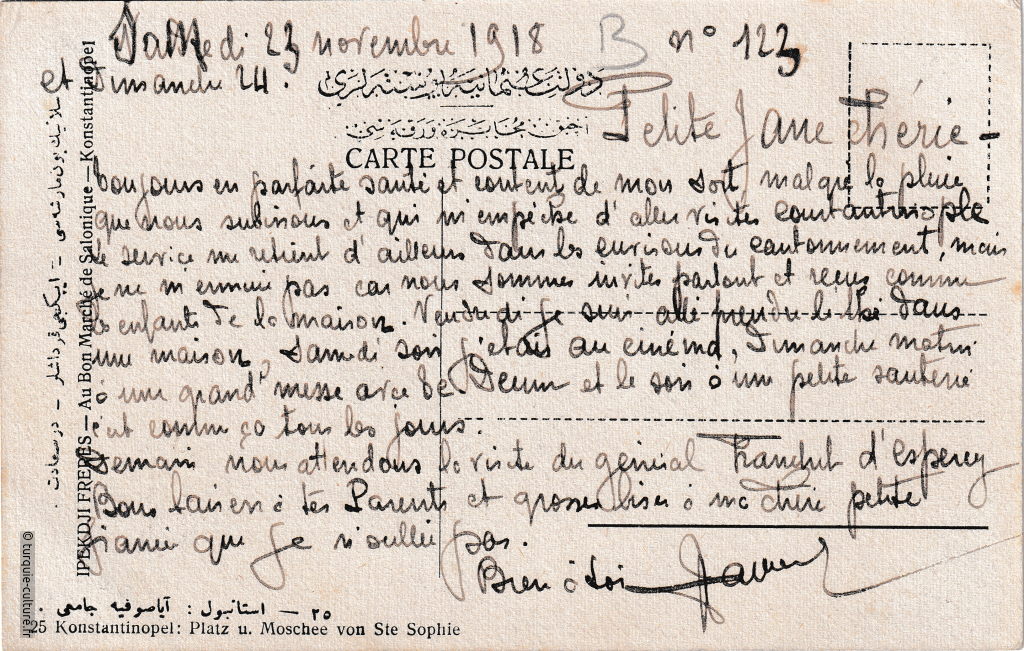 Samedi 23 novembre 1918 B n° 123
et Dimanche 24.
دولت عثمانیه پوسته‌لری
آچیق مخابره ورقه‌سی
CARTE POSTALE
Petite Jane chérie -
toujours en parfaite santé et content de mon sort, malgré la pluie
que nous subissons et qui m'empêche d'aller visiter Constantinople
le service me retient d'ailleurs dans les environs du cantonnement, mais
je ne m'ennuie pas car nous sommes invités partout et reçus comme
les enfants de la maison. Vendredi je suis allé prendre le thé dans
une maison, samedi soir j'étais au cinéma, Dimanche matin
à une grand' messe avec Te Deum et le soir à une petite sauterie
c'est comme ça tous les jours.
Demain nous attendons la visite du général Franchet d'Esperey
Bons baisers à tes Parents et grosses bises à ma chère petite
que je n'oublie pas.
Bien à toi
IPEKDJI FRERES — Au Bon Marché de Salonique — Konstantinopel
سلانیك بون مارشه‌سی — ایپكجی قرداشلر — درسعادت
٢٥ — استانبول : آیاصوفیه جامعی .
25 Konstantinopel: Platz u. Moschee von Ste Sophie
© turquie-culture.fr